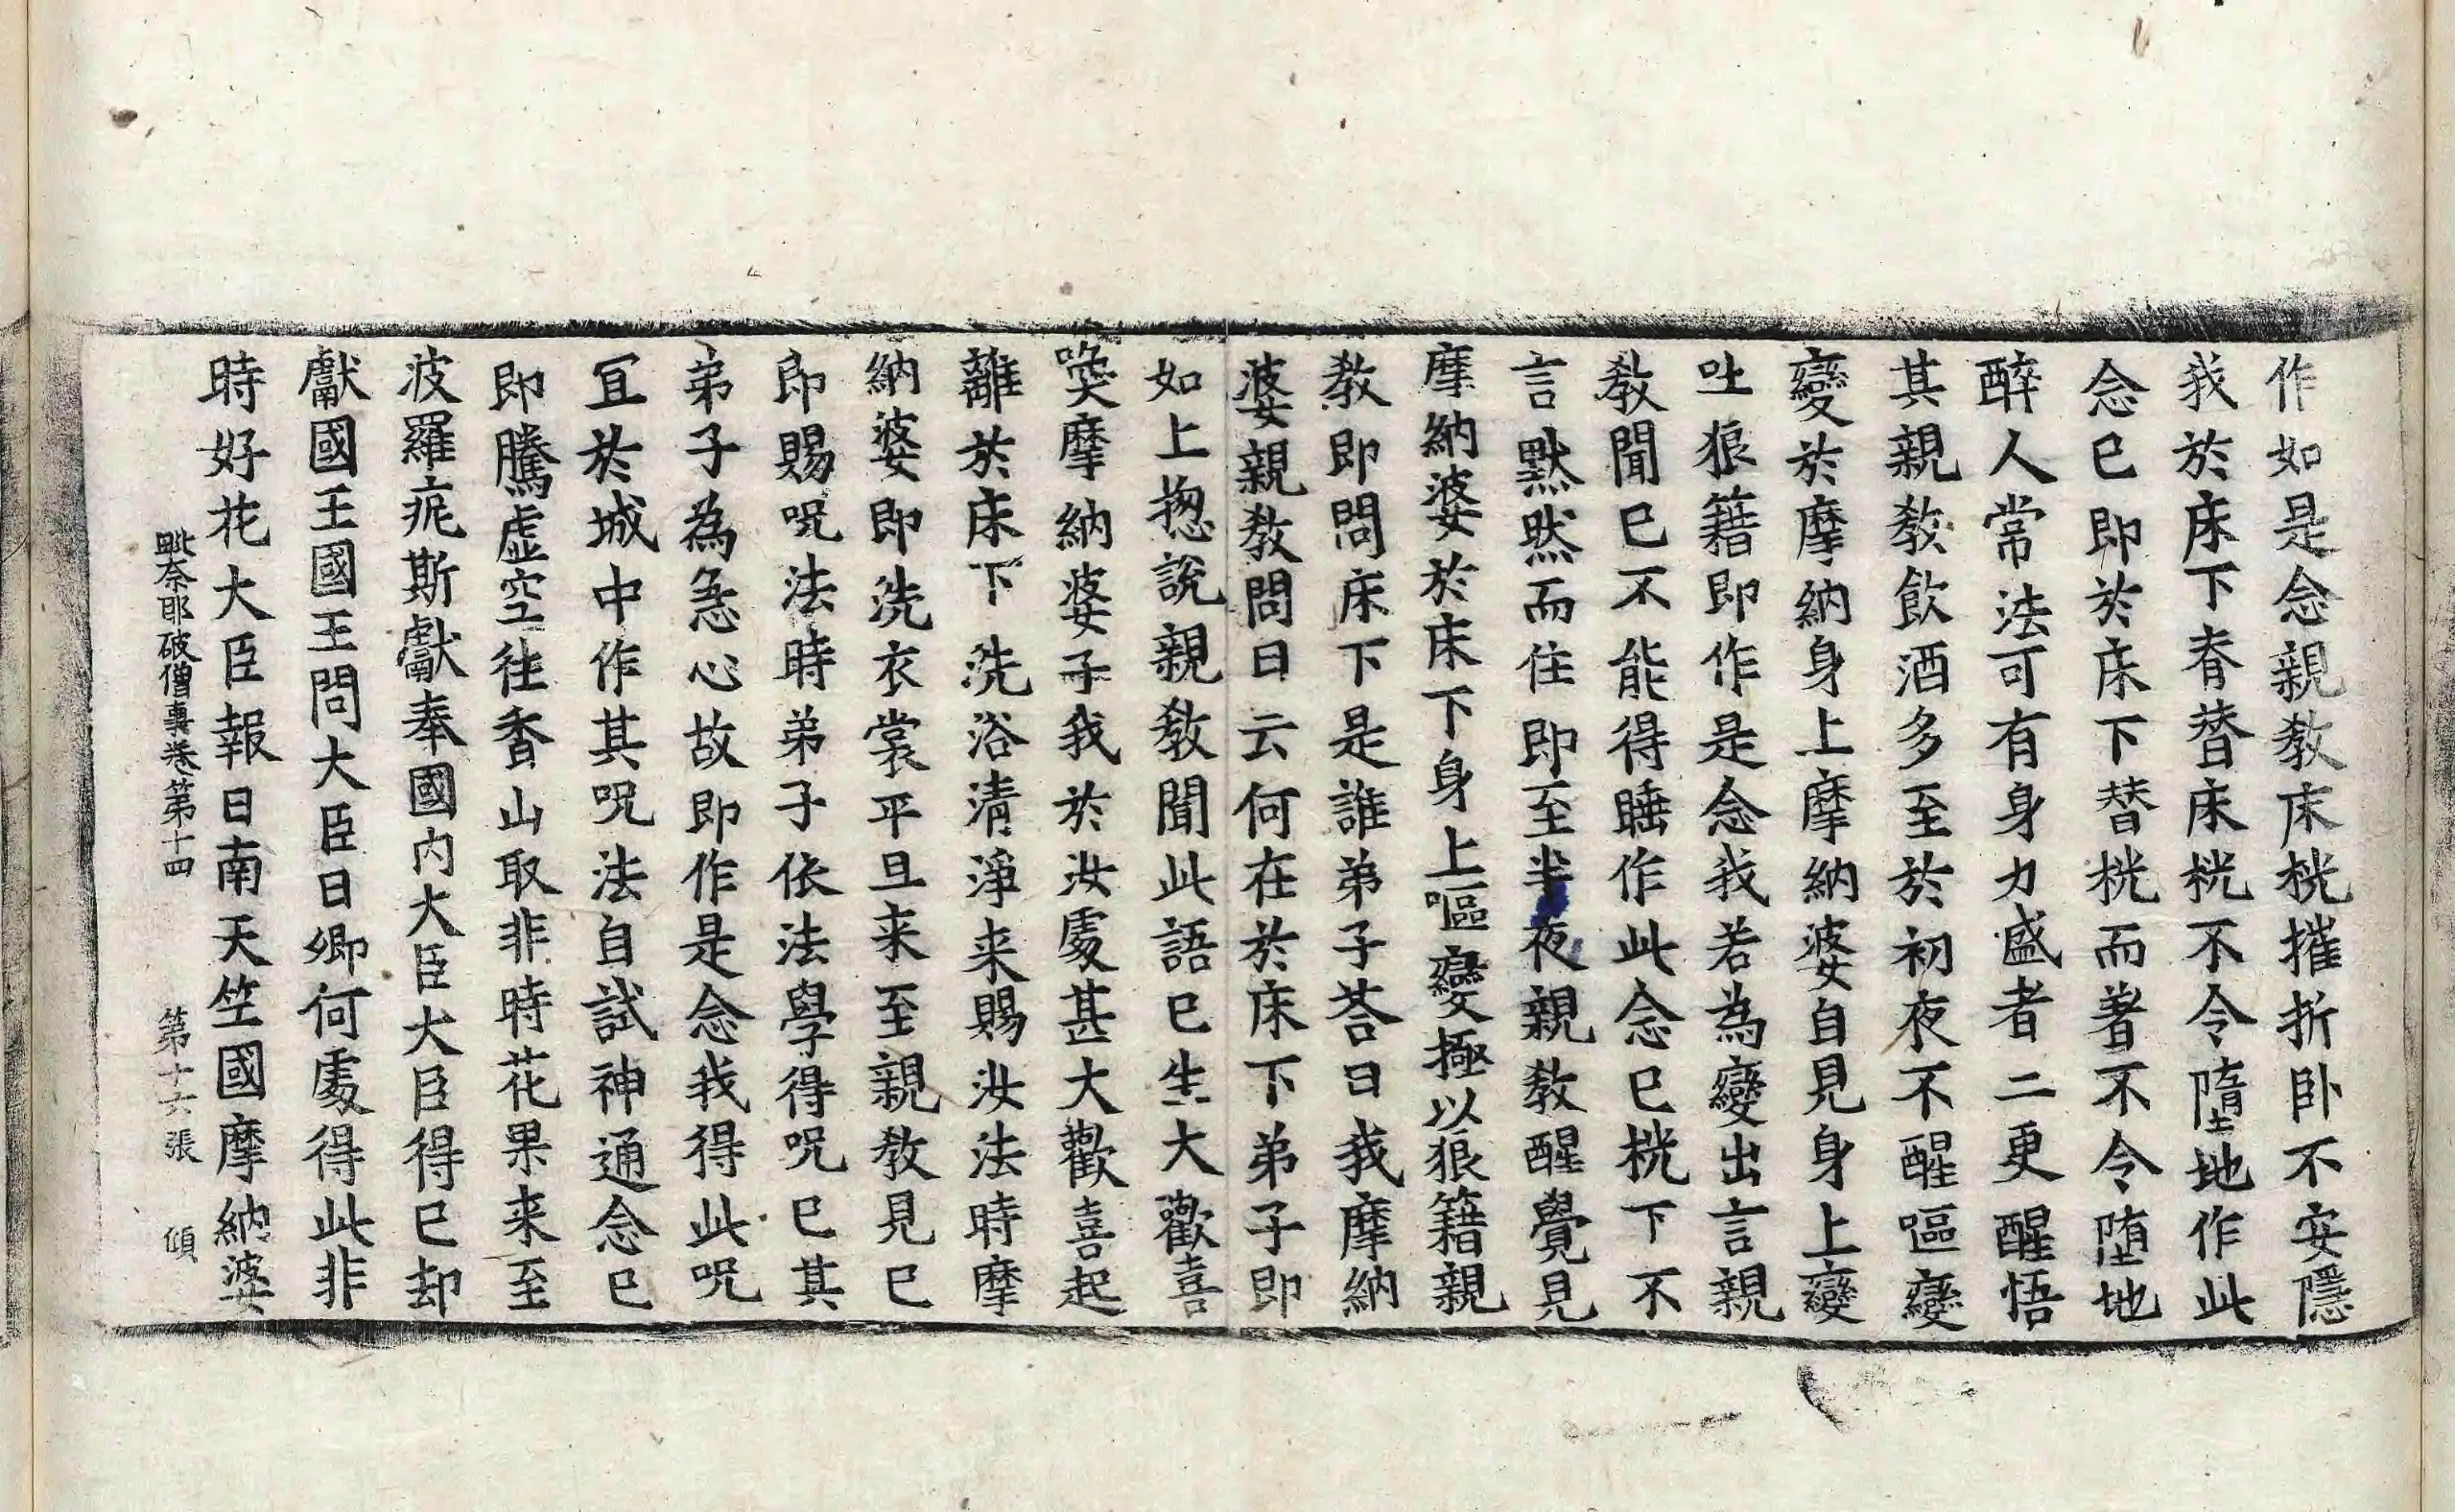 作如是念親教床桄摧折卧不安隱
我於床下脊替床桄不令墮地作此
念已即於床下替桄而著不令墮地
醉人常法可有身力盛者二更醒悟
其親教飲酒多至於初夜不醒嘔變
變於摩納身上摩納婆自見身上變
吐狼籍即作是念我若為變出言親
教聞已不能得睡作此念已桄下不
言默然而住即至半夜親教醒覺見
摩納婆於床下身上嘔變極以狼籍親
教即問床下是誰弟子荅曰我摩納
婆親教問曰云何在於床下弟子即
如上揔說親教聞此語已生大歡喜
喚摩納婆子我於汝處甚大歡喜起
離於床下洗浴清淨来賜汝法時摩
納婆即洗衣裳平旦来至親教見已
即賜呪法時弟子依法學得呪已其
弟子為急心故即作是念我得此呪
冝於城中作其呪法自試神通念已
即騰虛空往香山取非時花果来至
波羅痆斯獻奉國內大臣大臣得已却
獻國王國王問大臣曰卿何處得此非
時好花大臣報曰南天竺國摩納婆
毗奈耶破僧事卷第十四 第十六張 傾